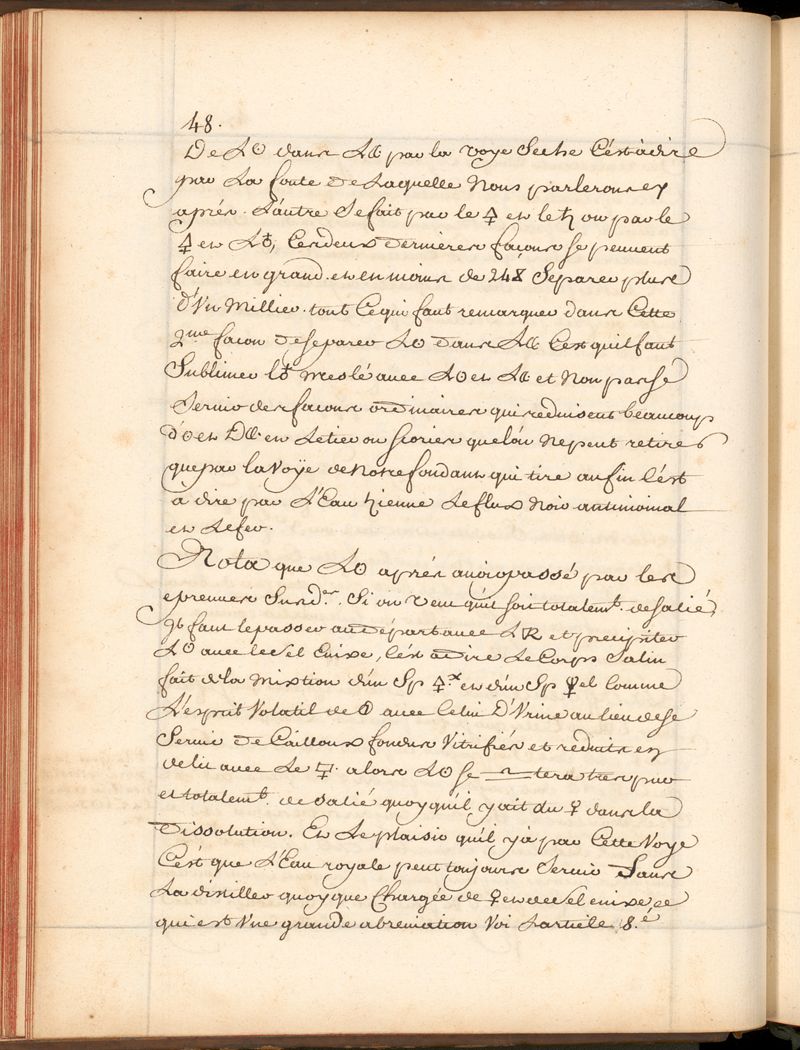 48.
De L'☉ dans L☾ par la voye Seche C'est à dire
par La fonte de Laquelle Nous parlerons cy
après. L'autre Se fait par le 🜍 et le ♄ ou par le
🜍 et L♁, Ces deux dernieres façons se peuvent
faire en grand. et en moins de 24 Separer plus
d'Un Millier. tout Ce qui faut remarquer dans Cette
2.me facon de Separer L☉ dans L☾ C'est qu'il faut
Sublimer l♁ meslé avec L☉ et L☾ et Non pas se
Servir des facons ordinaires qui reduisent beaucoup
d'☉ et D☾ en Letier ou scories que lón Ne peut retirer
que par la Voÿe de Notre fondant qui tire au fin C'est
a dire par L'Eau ♄ienne Le flux Noir antimoinal
et Le fer.
Nota que L☉ après avoir passé par les
epreuves Susd.es. Si on veut qu'il soit totalem.t desalié,
Il faut le passer au départ avec L🜇 et precipiter
L☉ avec le Sel Enixe, C'est a dire Le Corps Salin
fait de la Mixtion d'un Sp 🜍.x et d'un Sp el Comme
L'esprit Volatil de avec Celui D'Urine au lieu de se
Servir de Cailloux fondus Vitrifiés et reduits en
avec Le alors L☉ Se tera tres pur
et totalem.t desalié quoyqu'il y ait du ♀ dans la
Dissolution. Et Le plaisir qu'il y a par Cette Voye
C'est que L'Eau royale peut toujours Servir Sans
La distiller quoyque Chargée de ♀ et de Sel enixe, ce
qui est Une grande abreviation Voi Larticle 8.e